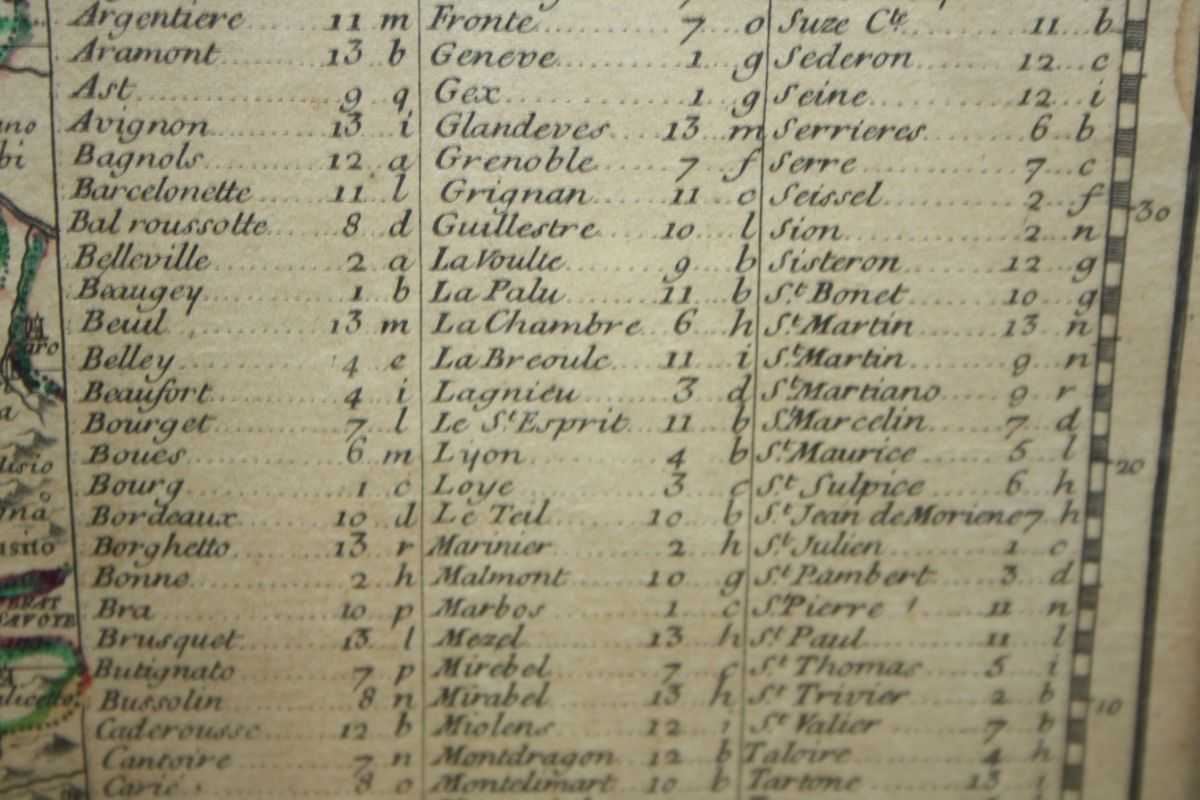 Argentiere 11 m
Aramont 13 b
Ast 9 q
Avignon 13 i
Bagnols 12 a
Barcelonette 11 l
Bal roussotte 8 d
Belleville 2 a
Beaugey 1 b
Beuil 13 m
Belley 4 e
Beaufort 4 i
Bourget 7 l
Boues 6 m
Bourg 1 c
Bordeaux 10 d
Borghetto 13 r
Bonne 2 h
Bra 10 p
Brusquet 13 l
Butignato 7 p
Bussolin 8 n
Caderousse 12 b
Cantoire 7 n
Carie 8 o
Fronte 7 o
Geneve 1 g
Gex 1 g
Glandeves 13 m
Grenoble 7 f
Grignan 11 c
Guillestre 10 l
La Voulte 9 b
La Palu 11 b
La Chambre 6 h
La Breoule 11 i
Lagnieu 3 d
Le St. Esprit 11 b
Lyon 4 b
Loye 3 c
Le Teil 10 b
Marinier 2 h
Malmont 10 g
Marbos 1 c
Mezel 13 h
Mirebel 7 f
Mirabel 13 h
Miolens 12 i
Montdragon 12 b
Montelimart 10 b
Suze Cte. 11 b
Sederon 12 c
Seine 12 i
Serrieres 6 b
Serre 7 c
Seissel 2 f
Sion 2 n
Sisteron 12 g
St. Bonet 10 g
St. Martin 13 n
St. Martin 9 n
St. Martiano 9 r
St. Marcelin 7 d
St. Maurice 5 l
St. Sulpice 6 h
St. Jean de Moriene 7 h
St. Julien 1 c
St. Pambert 3 d
St. Pierre 11 n
St. Paul 11 l
St. Thomas 5 i
St. Trivier 2 b
St. Valier 7 b
Taloire 4 h
Tartone 13 i
30
20
10